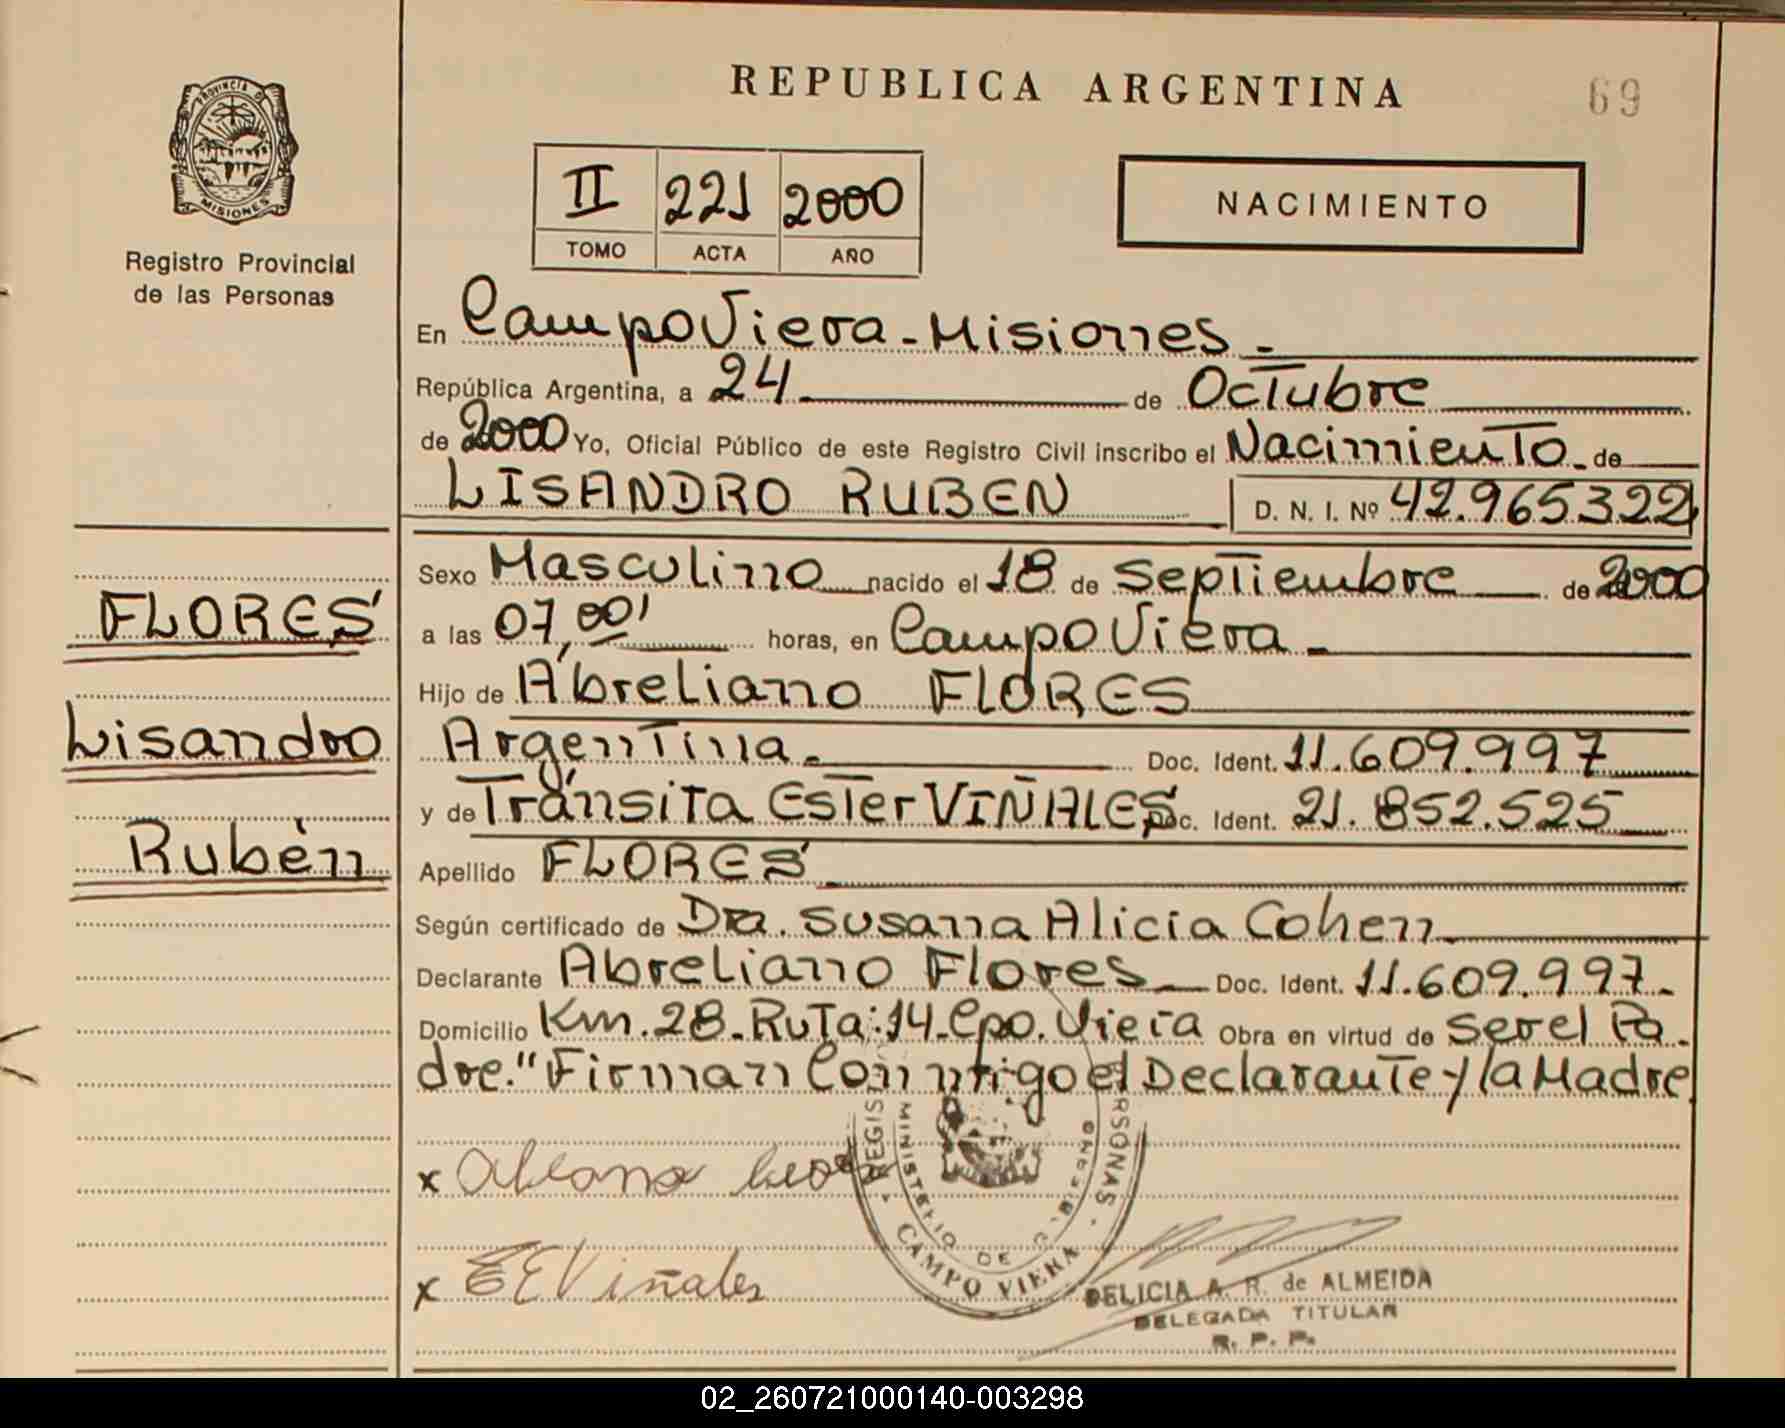 REPUBLICA ARGENTINA
69
PROVINCIA D
MISIONES
Registro Provincial
de las Personas
II 221 2000
TOMO ACTA AÑO
NACIMIENTO
En Campo Viera - Misiones -
República Argentina, a 24 de Octubre
de 2000 Yo, Oficial Público de este Registro Civil inscribo el Nacimiento de
LISANDRO RUBEN D. N. I. Nº 42.965322
Sexo Masculino nacido el 18 de Septiembre de 2000
a las 07,00' horas, en Campo Viera -
Hijo de Abreliano FLORES
Argentina - Doc. Ident. 11.609.997
y de Tránsita Ester VIÑALES Doc. Ident. 21.852.525
Apellido FLORES
Según certificado de Dra. Susana Alicia Cohen
Declarante Abreliano Flores Doc. Ident. 11.609.997.
Domicilio Km. 28 - Ruta: 14 - Cpo. Viera Obra en virtud de ser el Pa-
dre." Firman Conmigo el Declarante y la Madre
FLORES
Lisandro
Rubén
x
x E E Viñales
REGIST PERSONAS
MINISTERIO DE
CAMPO VIERA
DELICIA A. R. de ALMEIDA
DELEGADA TITULAR
R. P. P.
02_260721000140-003298